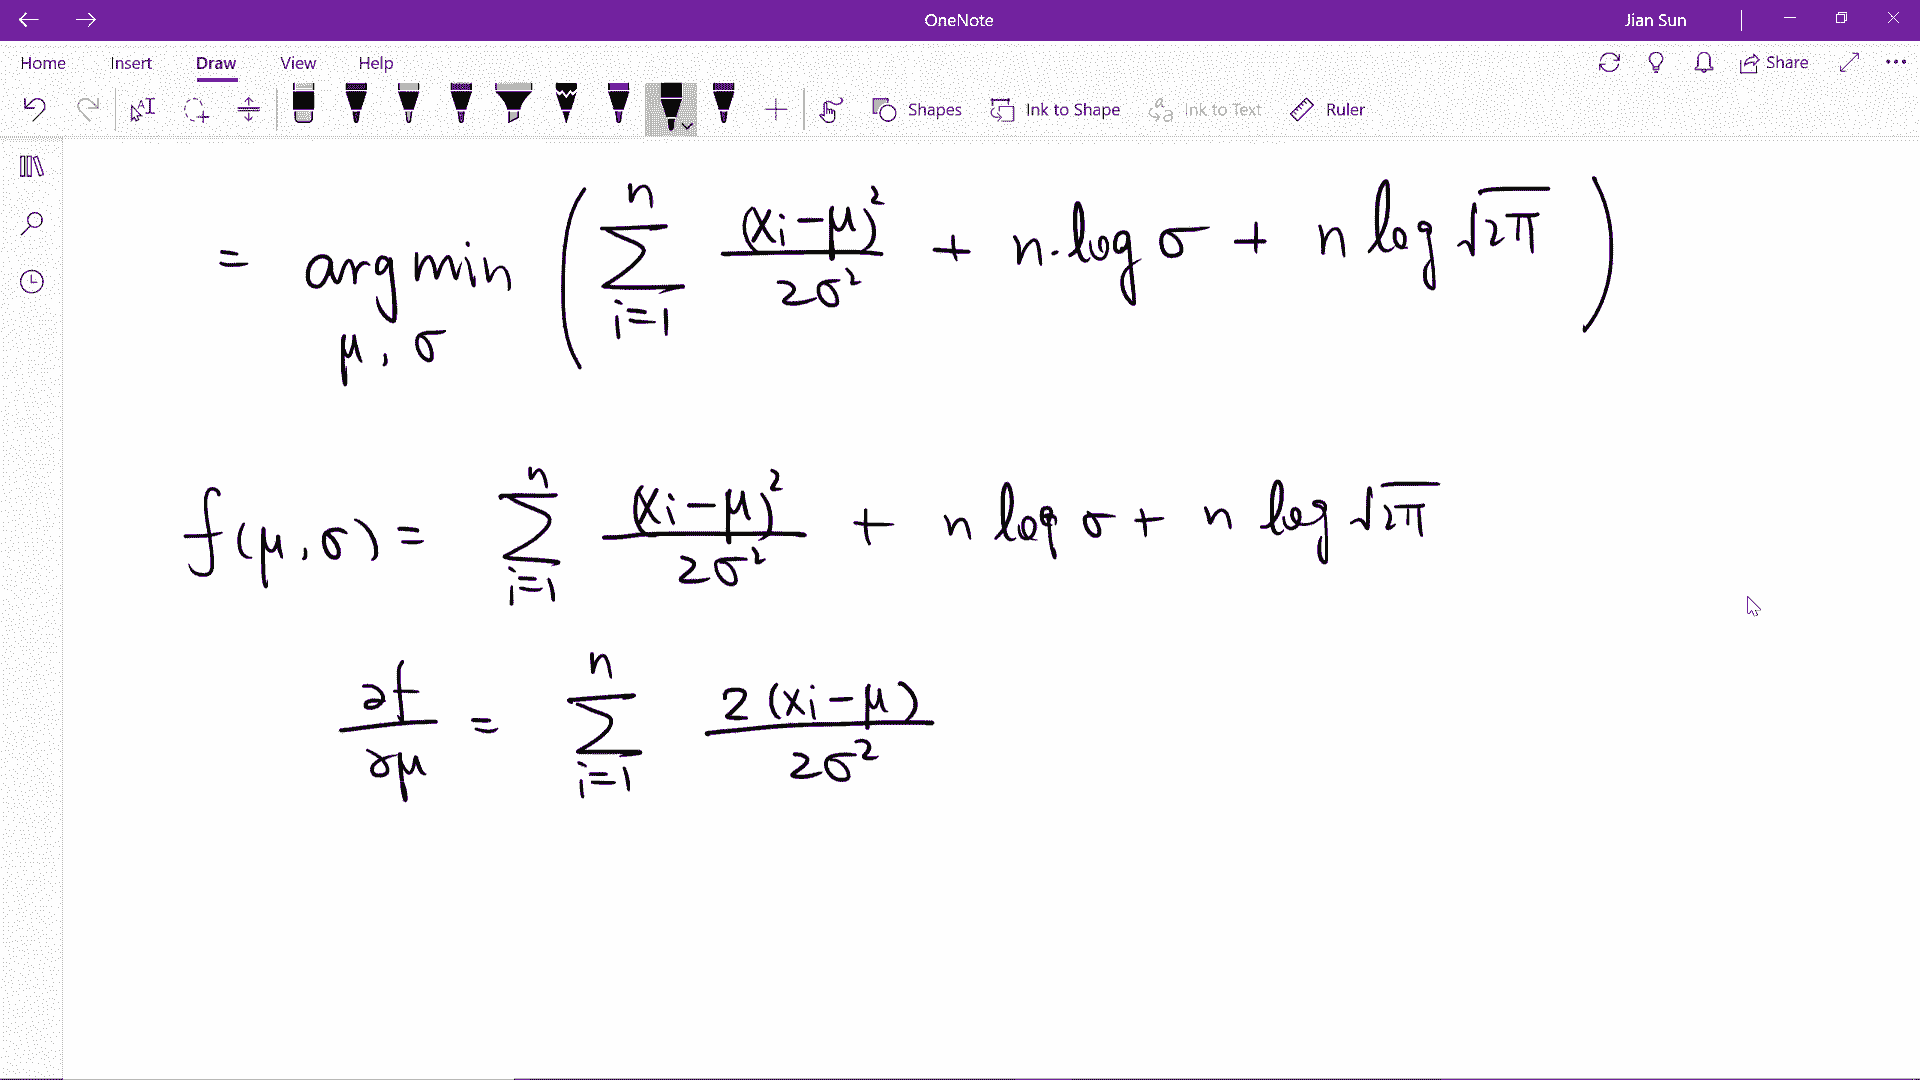 OneNote
Jian Sun
Home Insert Draw View Help
Share
Shapes Ink to Shape Ink to Text Ruler
= arg min_{μ, σ} ( ∑_{i=1}^{n} (xi − μ)² / 2σ² + n·log σ + n log √2π )
f(μ, σ) = ∑_{i=1}^{n} (xi − μ)² / 2σ² + n log σ + n log √2π
∂f/∂μ = ∑_{i=1}^{n} 2(xi − μ) / 2σ²